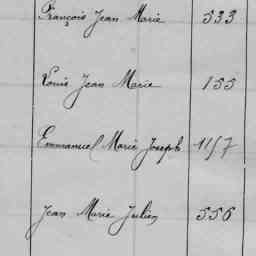 François Jean Marie 533
Louis Jean Marie 155
Emmanuel Marie Joseph 1157
Jean Marie Julien 556